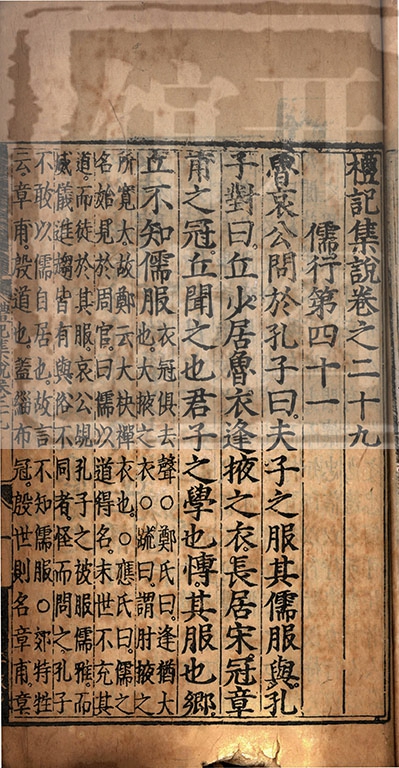 禮記集說卷之二十九
儒行第四十一
魯哀公問於孔子曰夫子之服其儒服與孔
子對曰丘少居魯衣逢掖之衣長居宋冠章
甫之冠丘聞之也君子之學也博其服也鄉
丘不知儒服衣冠俱去聲○鄭氏曰逢猶大
也大掖之衣○疏曰謂肘掖之
所寬大故鄭云大袂襌衣也○應氏曰儒之
名始見於周官曰儒以道得名末世不充其
道而徒於其服哀公覘孔子之被服儒雅而
威儀進趨皆有與俗不同者怪而問之孔子
不敢以儒自居也故言不知儒服○郊特牲
云章甫殷道也蓋緇布冠殷世則名章甫章